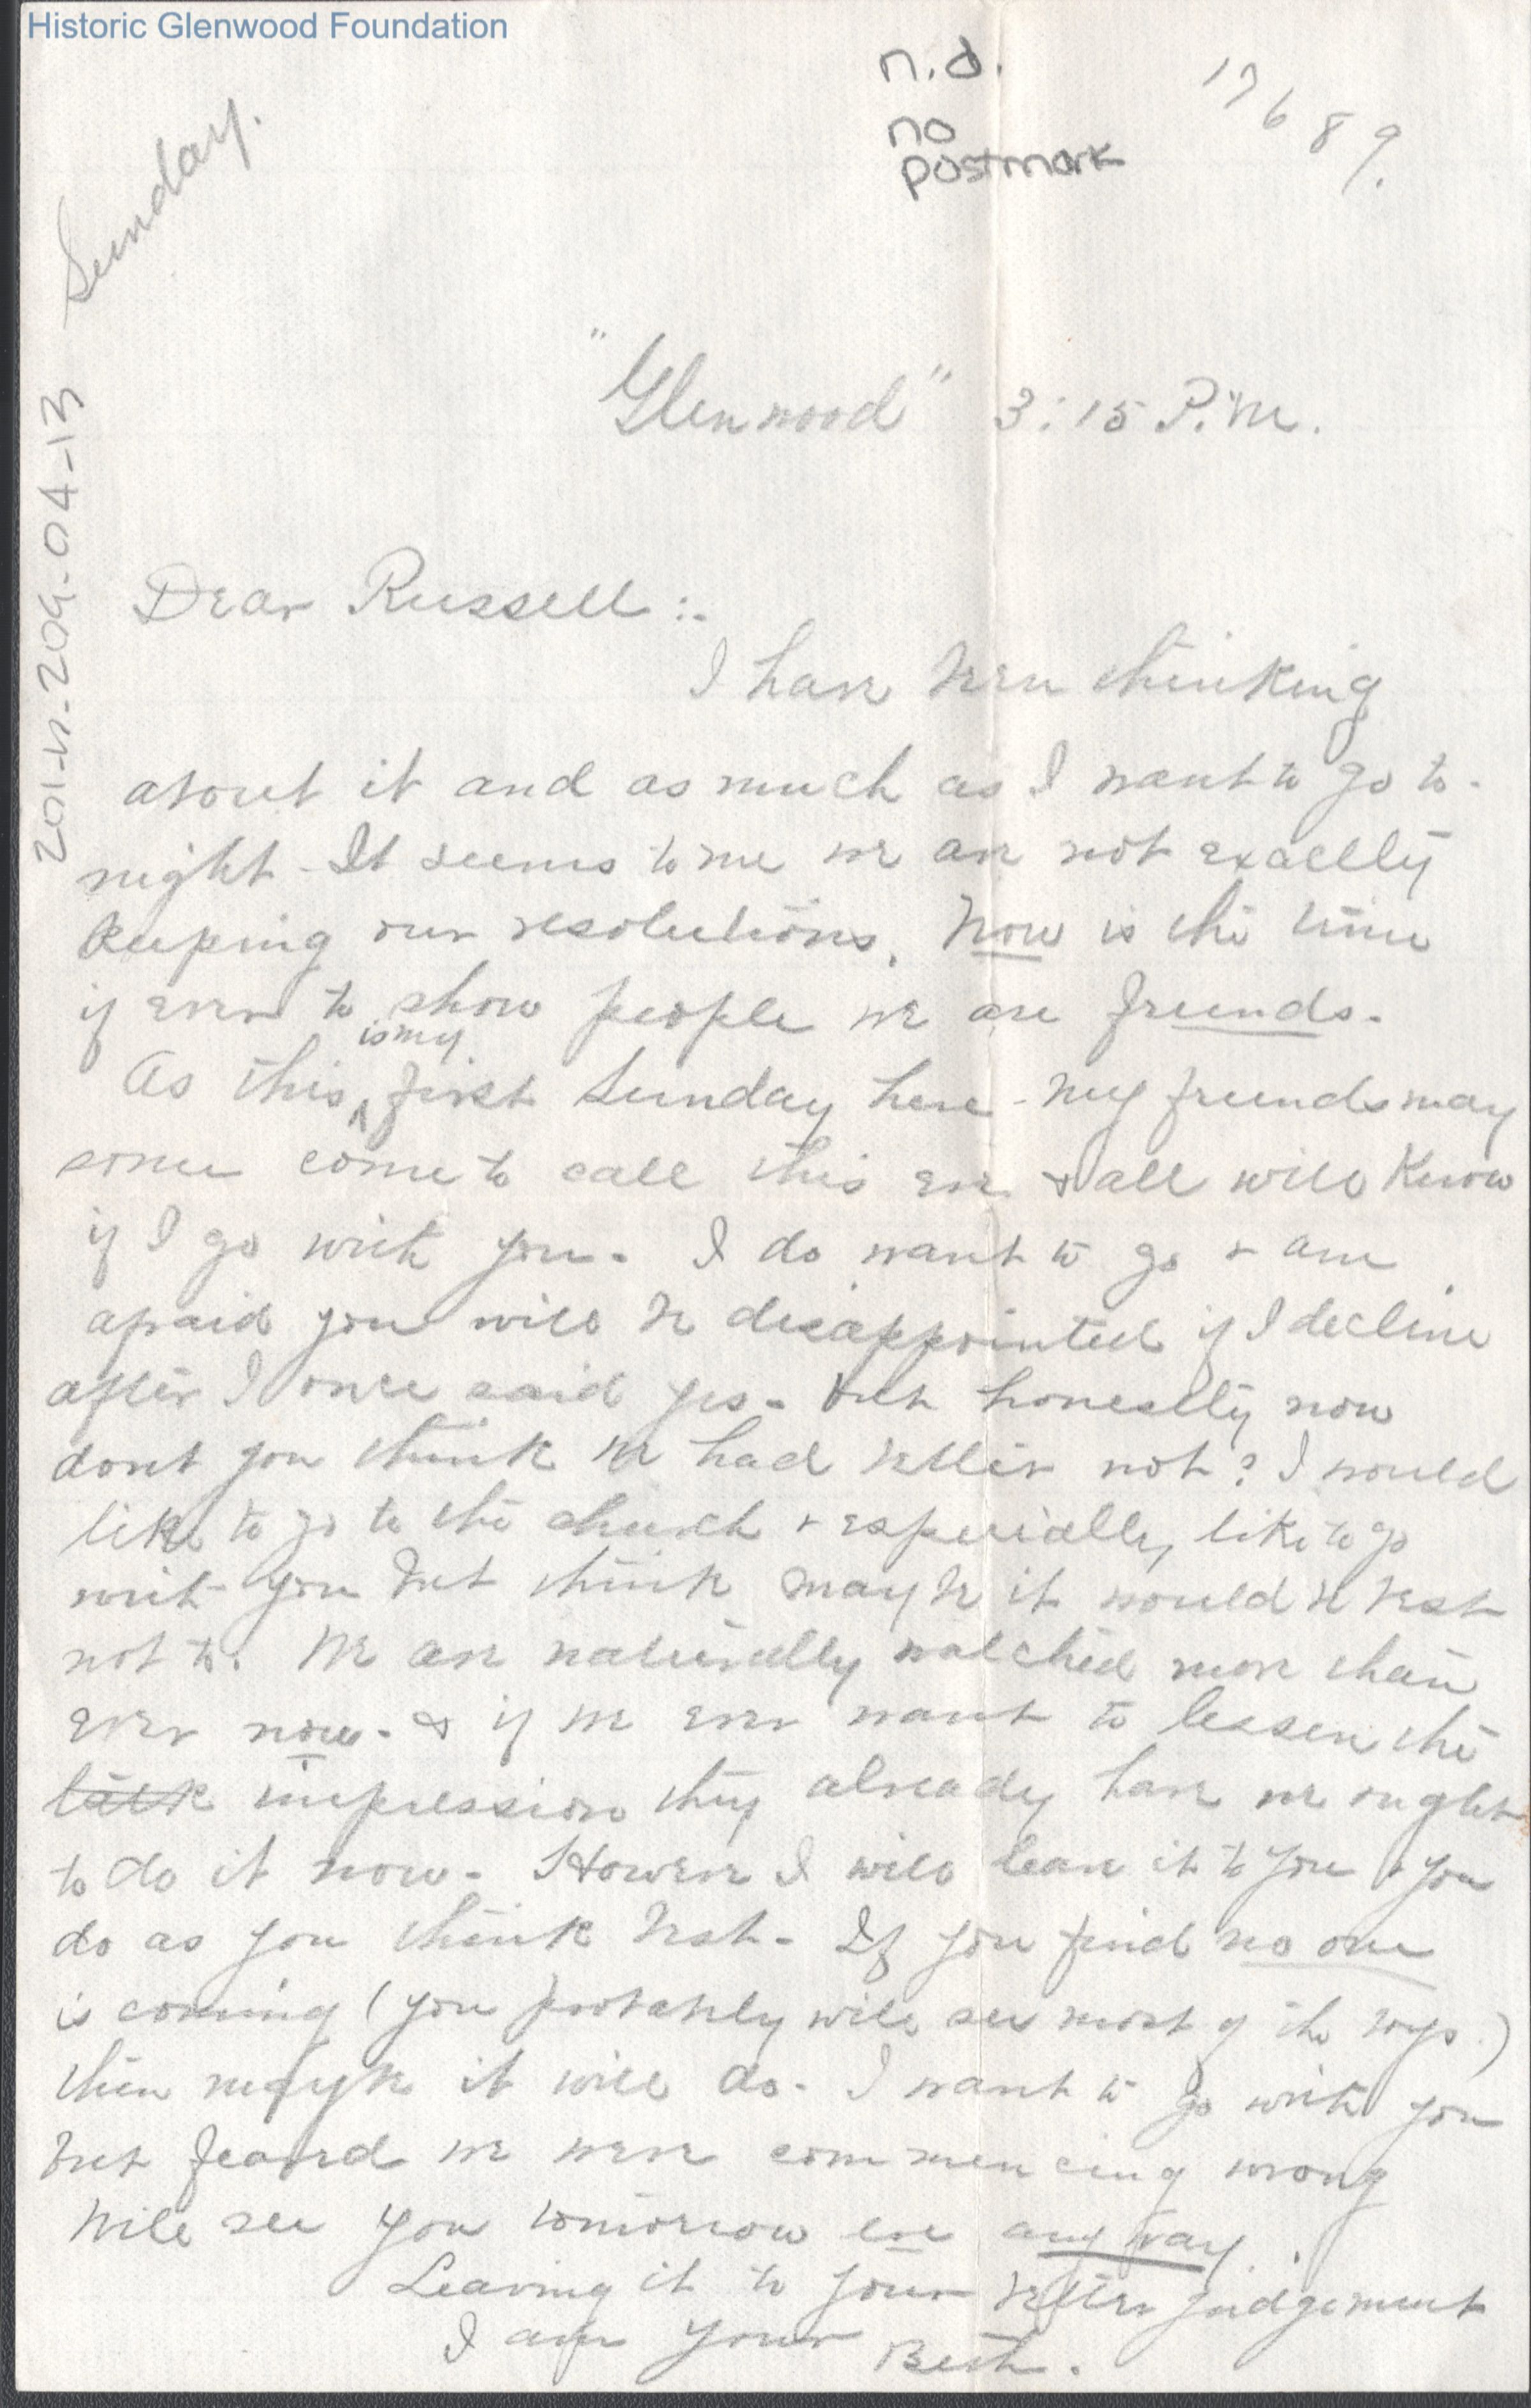 Historic Glenwood Foundation
n.d.
no
postmark
17689.
Sunday.
"Glenwood" 3:15 P.M.
Dear Russell:-
I have been thinking
about it and as much as I want to go to-
night - It seems to me we are not exactly
keeping our resolutions. Now is the time
if ever to show people we are friends.
As this is my first Sunday here - my friends may
some come to call this eve & all will know
if I go with you - I do want to go & am
afraid you will be disappointed if I decline
after I once said yes - but honestly now
dont you think we had better not? I would
like to go to the church & especially like to go
with you but think maybe it would be best
not to. We are naturally watched more than
ever now - & if we ever want to lessen the
talk impression they already have we ought
to do it now - However I will leave it to you & you
do as you think best - If you find no one
is coming (you probably will see most of the boys.)
then maybe it will do - I want to go with you
but feared we were commencing wrong
Will see you tomorrow eve any way.
Leaving it to your better judgement
I am your
Beth.